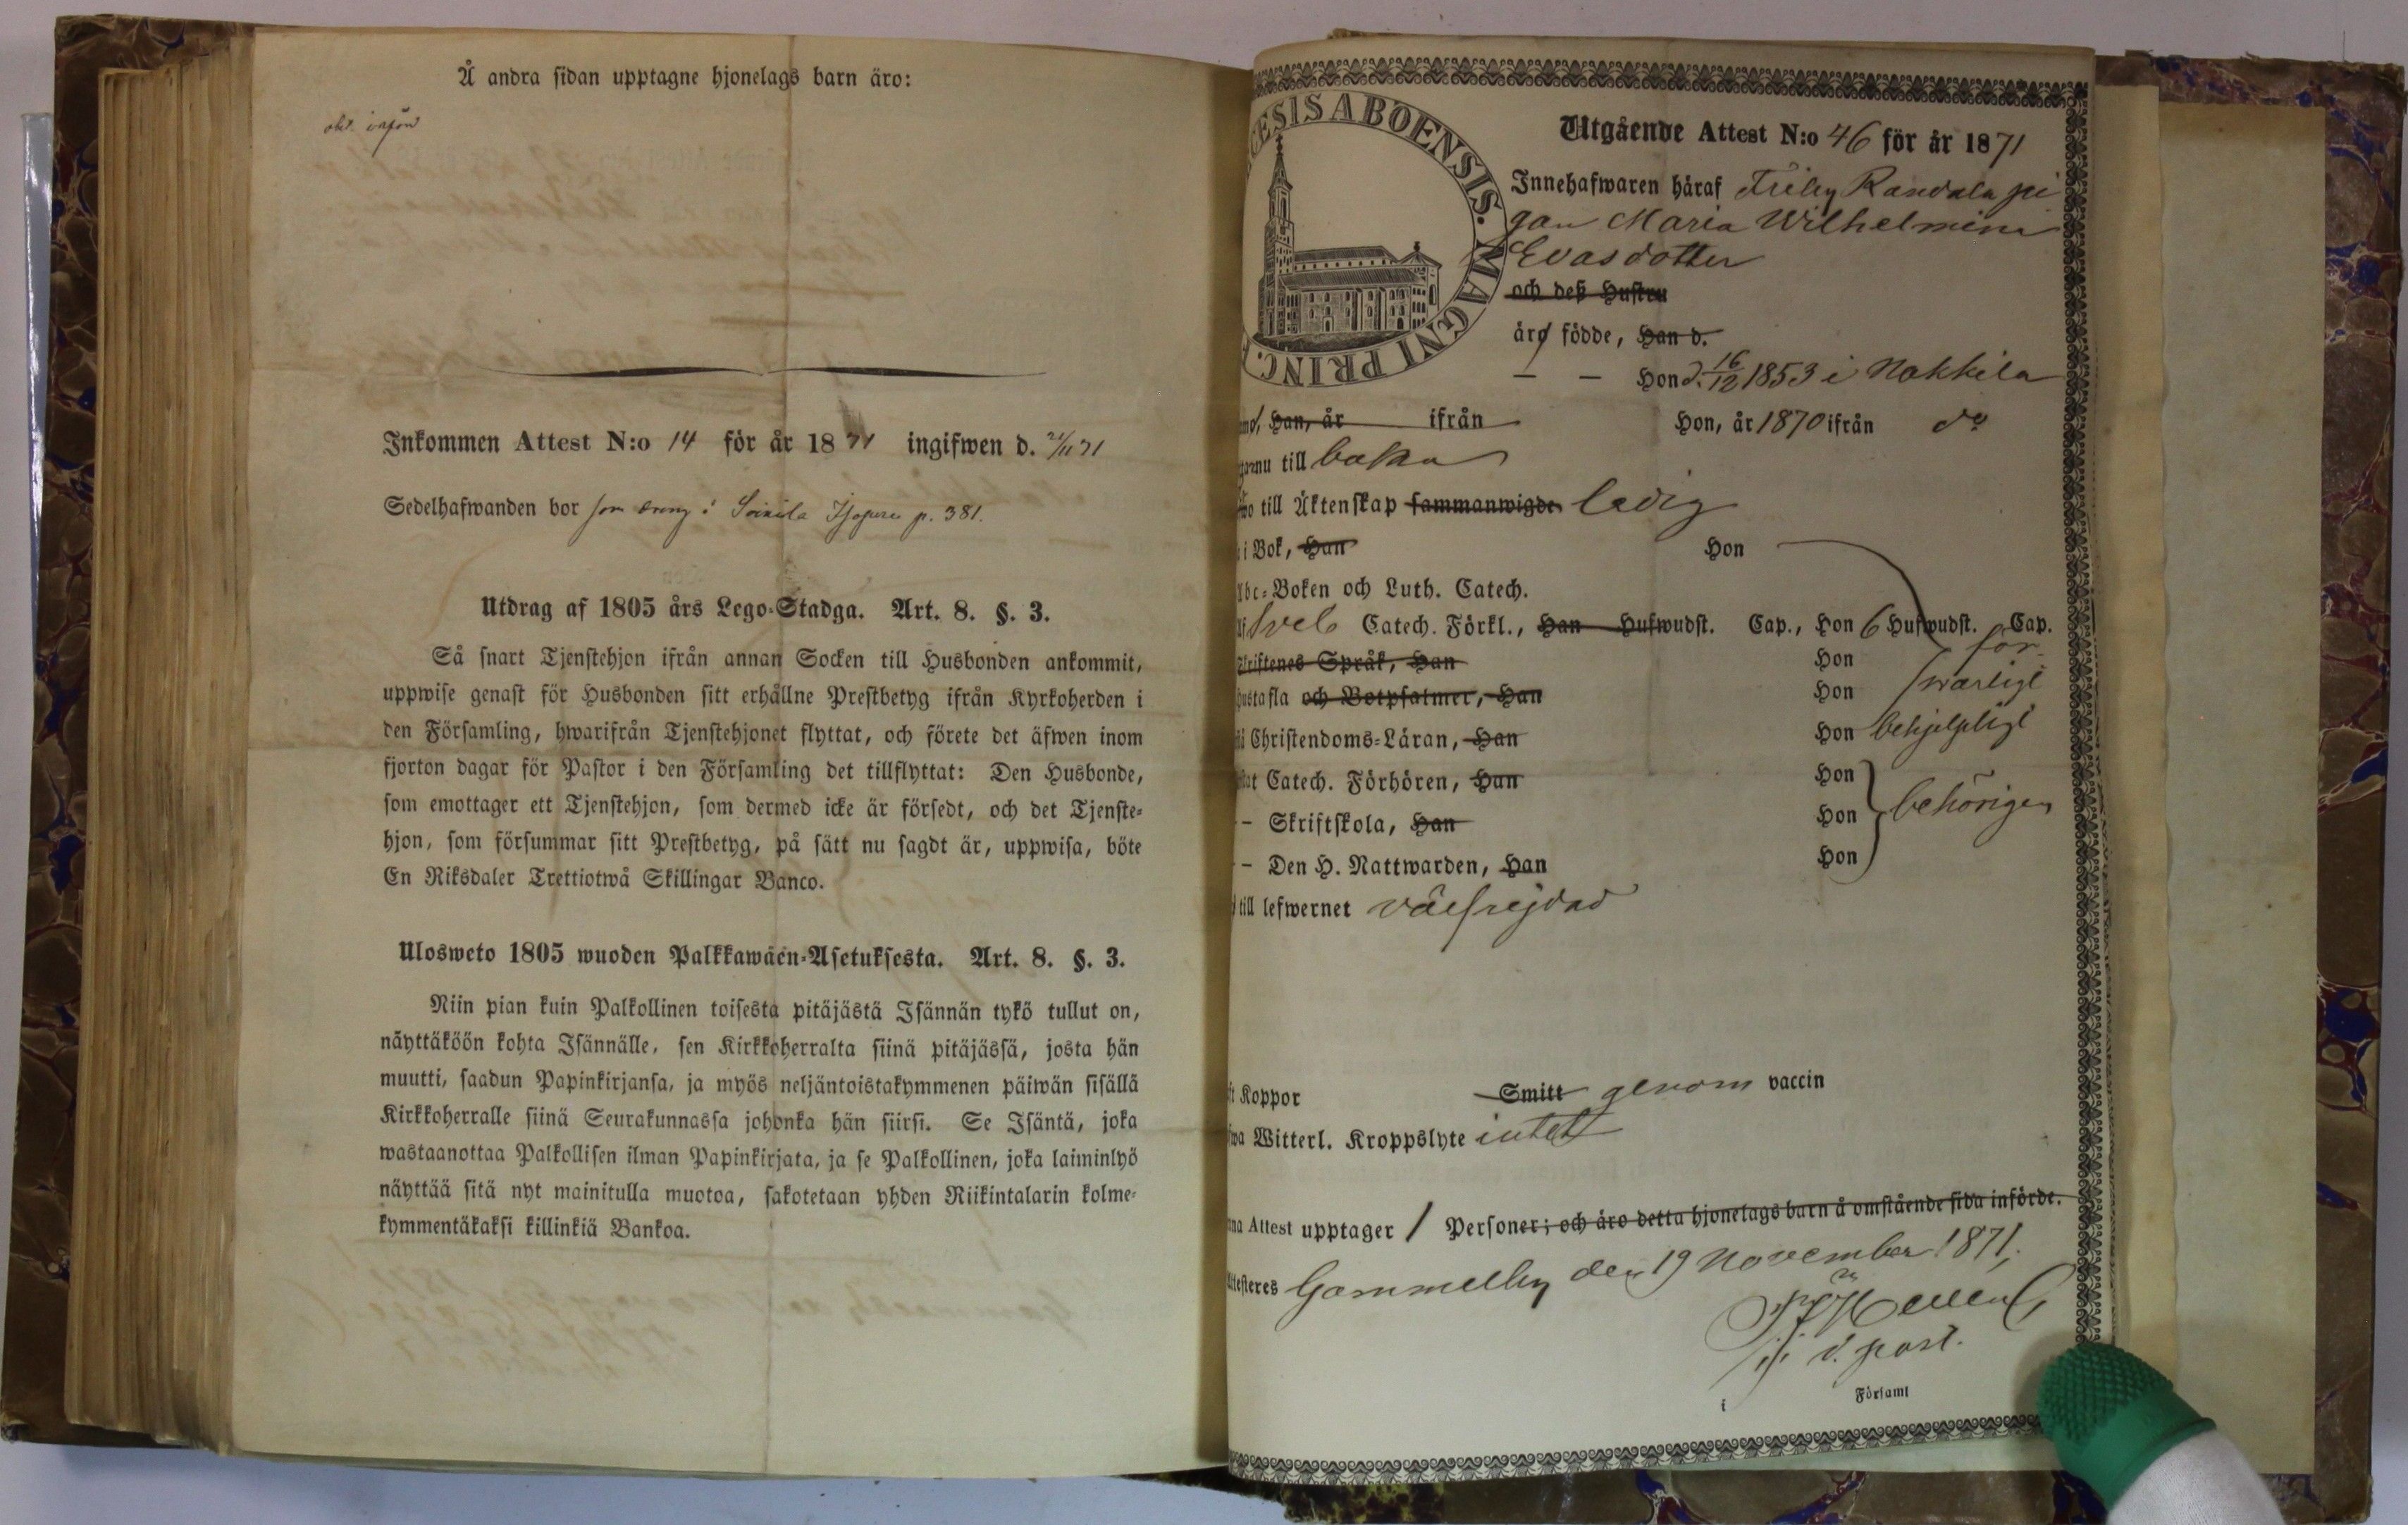 Å andra sidan upptagne hjonelags barn äro:
Inkommen Attest N:o 14 för år 1871 ingifwen d. 21/11 71
Sedelhafwanden bor som dräng i p. 381.
Utdrag af 1805 års Lego-Stadga. Art. 8. §. 3.
Så snart Tjenstehjon ifrån annan Socken till Husbonden ankommit,
uppwise genast för Husbonden sitt erhållne Prestbetyg ifrån Kyrkoherden i
den Församling, hwarifrån Tjenstehjonet flyttat, och förete det äfwen inom
fjorton dagar för Pastor i den Församling det tillflyttat: Den Husbonde,
som emottager ett Tjenstehjon, som dermed icke är försedt, och det Tjenste-
hjon, som försummar sitt Prestbetyg, på sätt nu sagdt är, uppwisa, böte
En Riksdaler Trettiotwå Skillingar Banco.
Ulosweto 1805 wuoden Palkkawäen-Asetuksesta. Art. 8. §. 3.
Niin pian kuin Palkollinen toisesta pitäjästä Isännän tykö tullut on,
näyttäköön kohta Isännälle, sen Kirkkoherralta siinä pitäjässä, josta hän
muutti, saadun Papinkirjansa, ja myös neljäntoistakymmenen päiwän sisällä
Kirkkoherralle siinä Seurakunnassa johonka hän siirsi. Se Isäntä, joka
wastaanottaa Palkollisen ilman Papinkirjata, ja se Palkollinen, joka laiminlyö
näyttää sitä nyt mainitulla muotoa, sakotetaan yhden Riikintalarin kolme-
kymmentäkaksi killinkiä Bankoa.
CESIS ABOENSIS. MAGNI PRINC.
Utgående Attest N:o 46 för år 1871
Innehafwaren häraf Friby Randala pi
gan Maria Wilhelmina
Evasdotter
och deß Hustru
äro födde, Han d.
— — Hon d. 16/12 1853 i Nakkila
Han, år ifrån Hon, år 1870 ifrån do
nu till baka
till Äktenskap sammanwigde ledig
i Bok, Han Hon
Abc-Boken och Luth. Catech.
Sveb Catech. Förkl., Han Hufwudst. Cap., Hon 6 Hufwudst. Cap.
Skriftenes Språk, Han Hon för-
Hustafla och Botpsalmer, Han Hon swarligt
Christendoms-Läran, Han Hon behjelpligt
Catech. Förhören, Han Hon
- Skriftskola, Han Hon behörigen
- Den H. Nattwarden, Han Hon
till lefwernet välfrejdad
Koppor Smitt genom vaccin
Witterl. Kroppslyte intet
Attest upptager 1 Personer; och äro detta hjonelags barn å omstående sida införde.
Attesteres Gammelby den 19 November 1871,
v. past.
i Församl